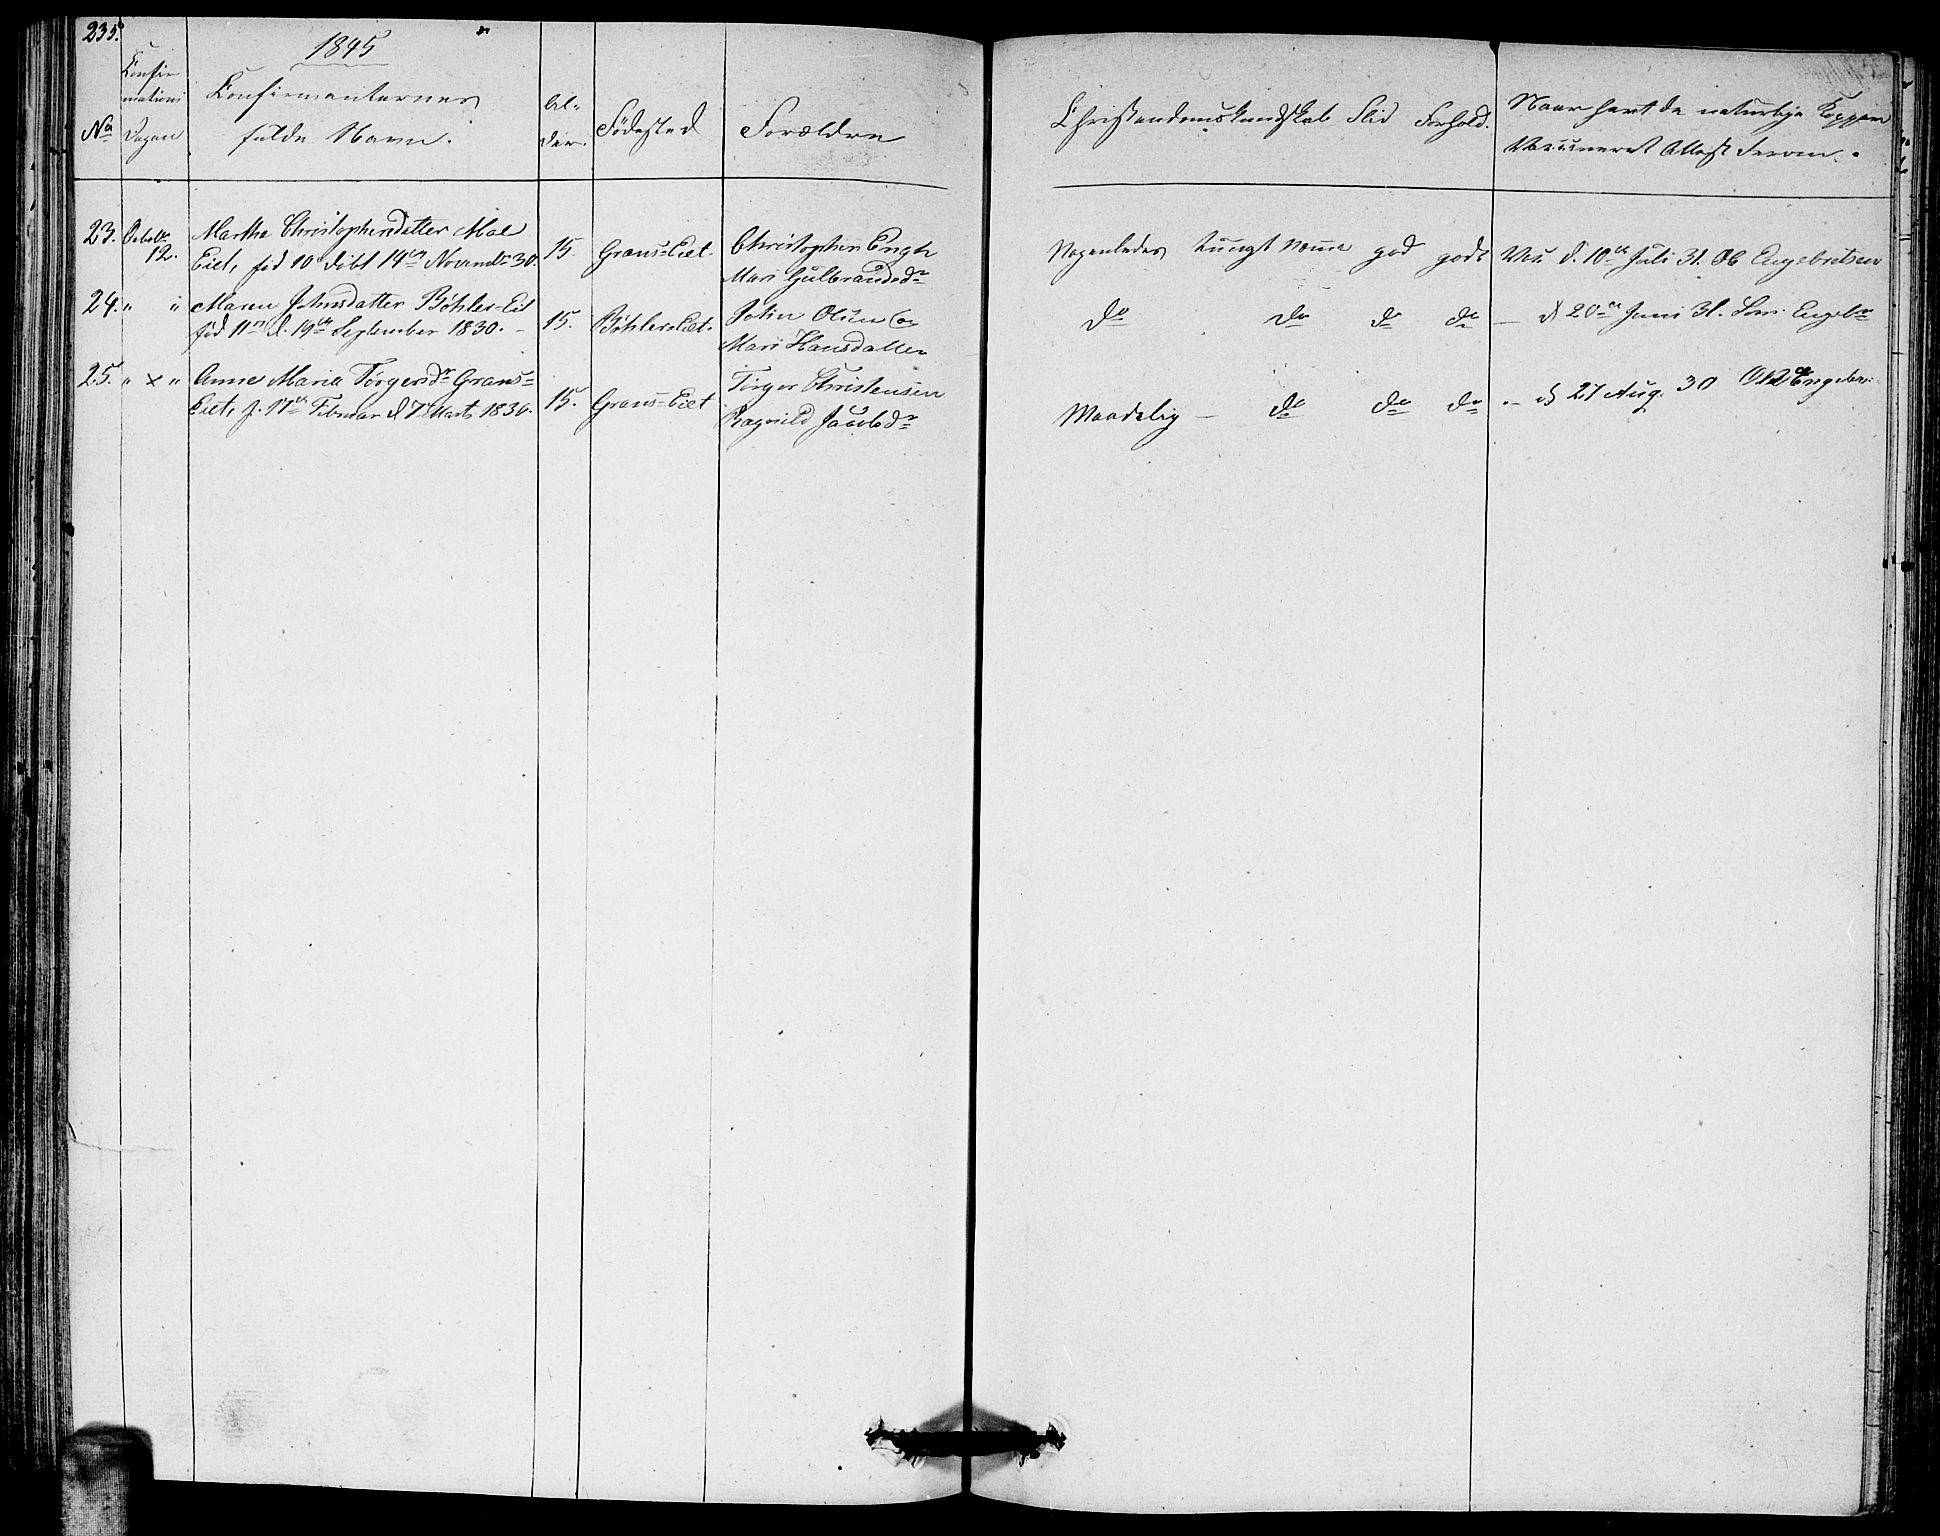 235.
1845
No
Confir
mations
Dagen
Confirmanternes
fulde Navn.
Al-
der.
Födested
Forældre
Christendomskundskab Flid Forhold.
Naar havt de naturlige Kopper
Vaccineret Attest derom.
23. Octob. 12. Martha Christophersdatter Moe
Eiet, fød 10 döbt 14de Novembr 30. 15. Grans-Eiet. Christopher Engh
Mari Gulbrandsdr
Nogenledes tungt Nemme god godt Vac. d. 10de Juli 31. Ob Engebretsen
24. " " Maren Johnsdatter Böhler-Eiet
fød 11te d. 19de September 1830. 15. Böhlers Eiet. John Olsen og
Mari Hansdatter
do do do do — d 20de Juni 31. Engebr
25. " x " Anne Maria Törgersdr Grans-
Eiet, f. 17de Februar d 7 Marts 1830. 15. Grans-Eiet Törger Christensen
Ragnild Jacobsdr
Maadelig — do do do — d 27 Aug. 30 Engebr